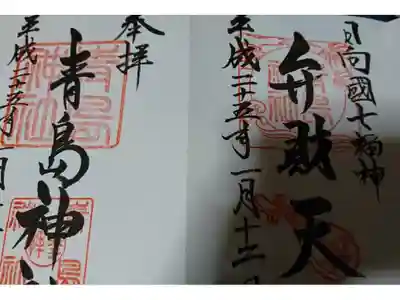 日向國七福神
弁財天
平成二十五年一月十二日
奉拝
青島神社
平成二十五年一月